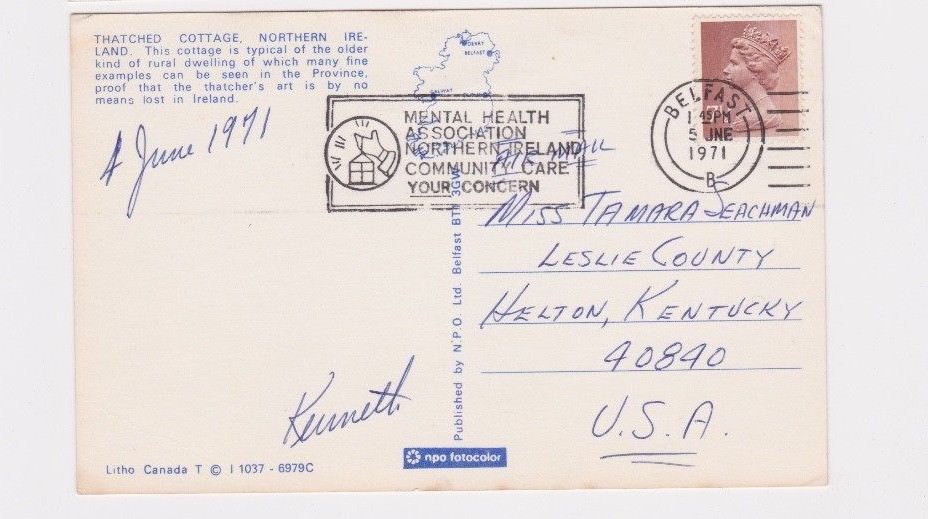 THATCHED COTTAGE, NORTHERN IRE-
LAND. This cottage is typical of the older
kind of rural dwelling of which many fine
examples can be seen in the Province,
proof that the thatcher's art is by no
means lost in Ireland.
4 June 1971
Kenneth
Litho Canada T © I 1037 - 6979C
DERRY
BELFAST
MENTAL HEALTH
ASSOCIATION
NORTHERN IRELAND
COMMUNITY CARE
YOUR CONCERN
BELFAST
1 45PM
5 JNE
1971
B
Published by N.P.O. Ltd. Belfast 3GW
npo fotocolor
AIR MAIL
MISS TAMARA SEACHMAN
LESLIE COUNTY
HELTON, KENTUCKY
40840
U.S.A.